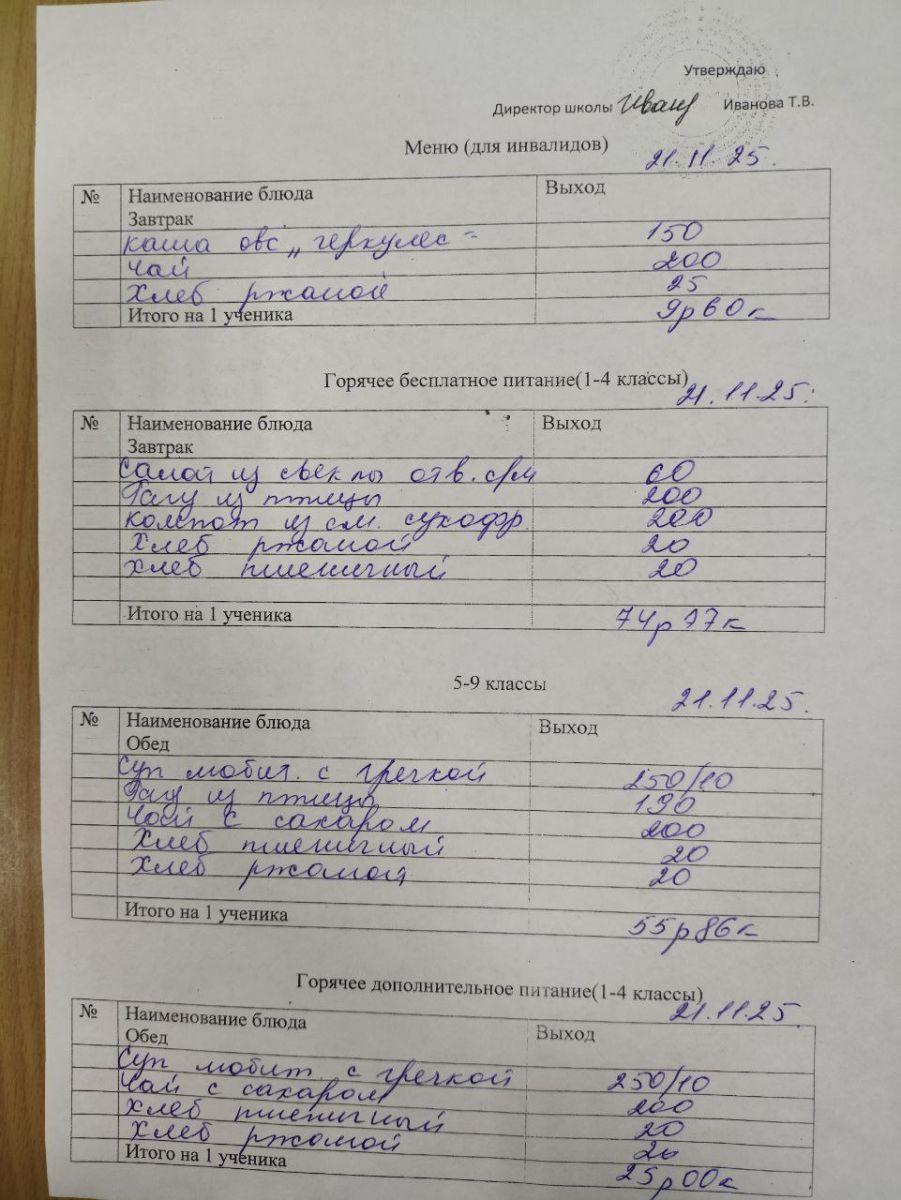 Утверждаю
Директор школы Иванова Т.В.
Меню (для инвалидов)
21.11.25.
№ Наименование блюда Выход
Завтрак
каша овс „геркулес" 150
чай 200
Хлеб ржаной 25
Итого на 1 ученика 9р60к
Горячее бесплатное питание(1-4 классы)
21.11.25.
№ Наименование блюда Выход
Завтрак
Салат из свеклы отв. с/м 60
Рагу из птицы 200
компот из см. сухофр 200
Хлеб ржаной 20
хлеб пшеничный 20
Итого на 1 ученика 74р77к
5-9 классы
21.11.25.
№ Наименование блюда Выход
Обед
Суп с гречкой 250/10
Рагу из птицы 190
Чай с сахаром 200
Хлеб пшеничный 20
Хлеб ржаной 20
Итого на 1 ученика 55р86к
Горячее дополнительное питание(1-4 классы)
21.11.25.
№ Наименование блюда Выход
Обед
Суп с гречкой 250/10
Чай с сахаром 200
Хлеб пшеничный 20
Хлеб ржаной 20
Итого на 1 ученика 25р00к